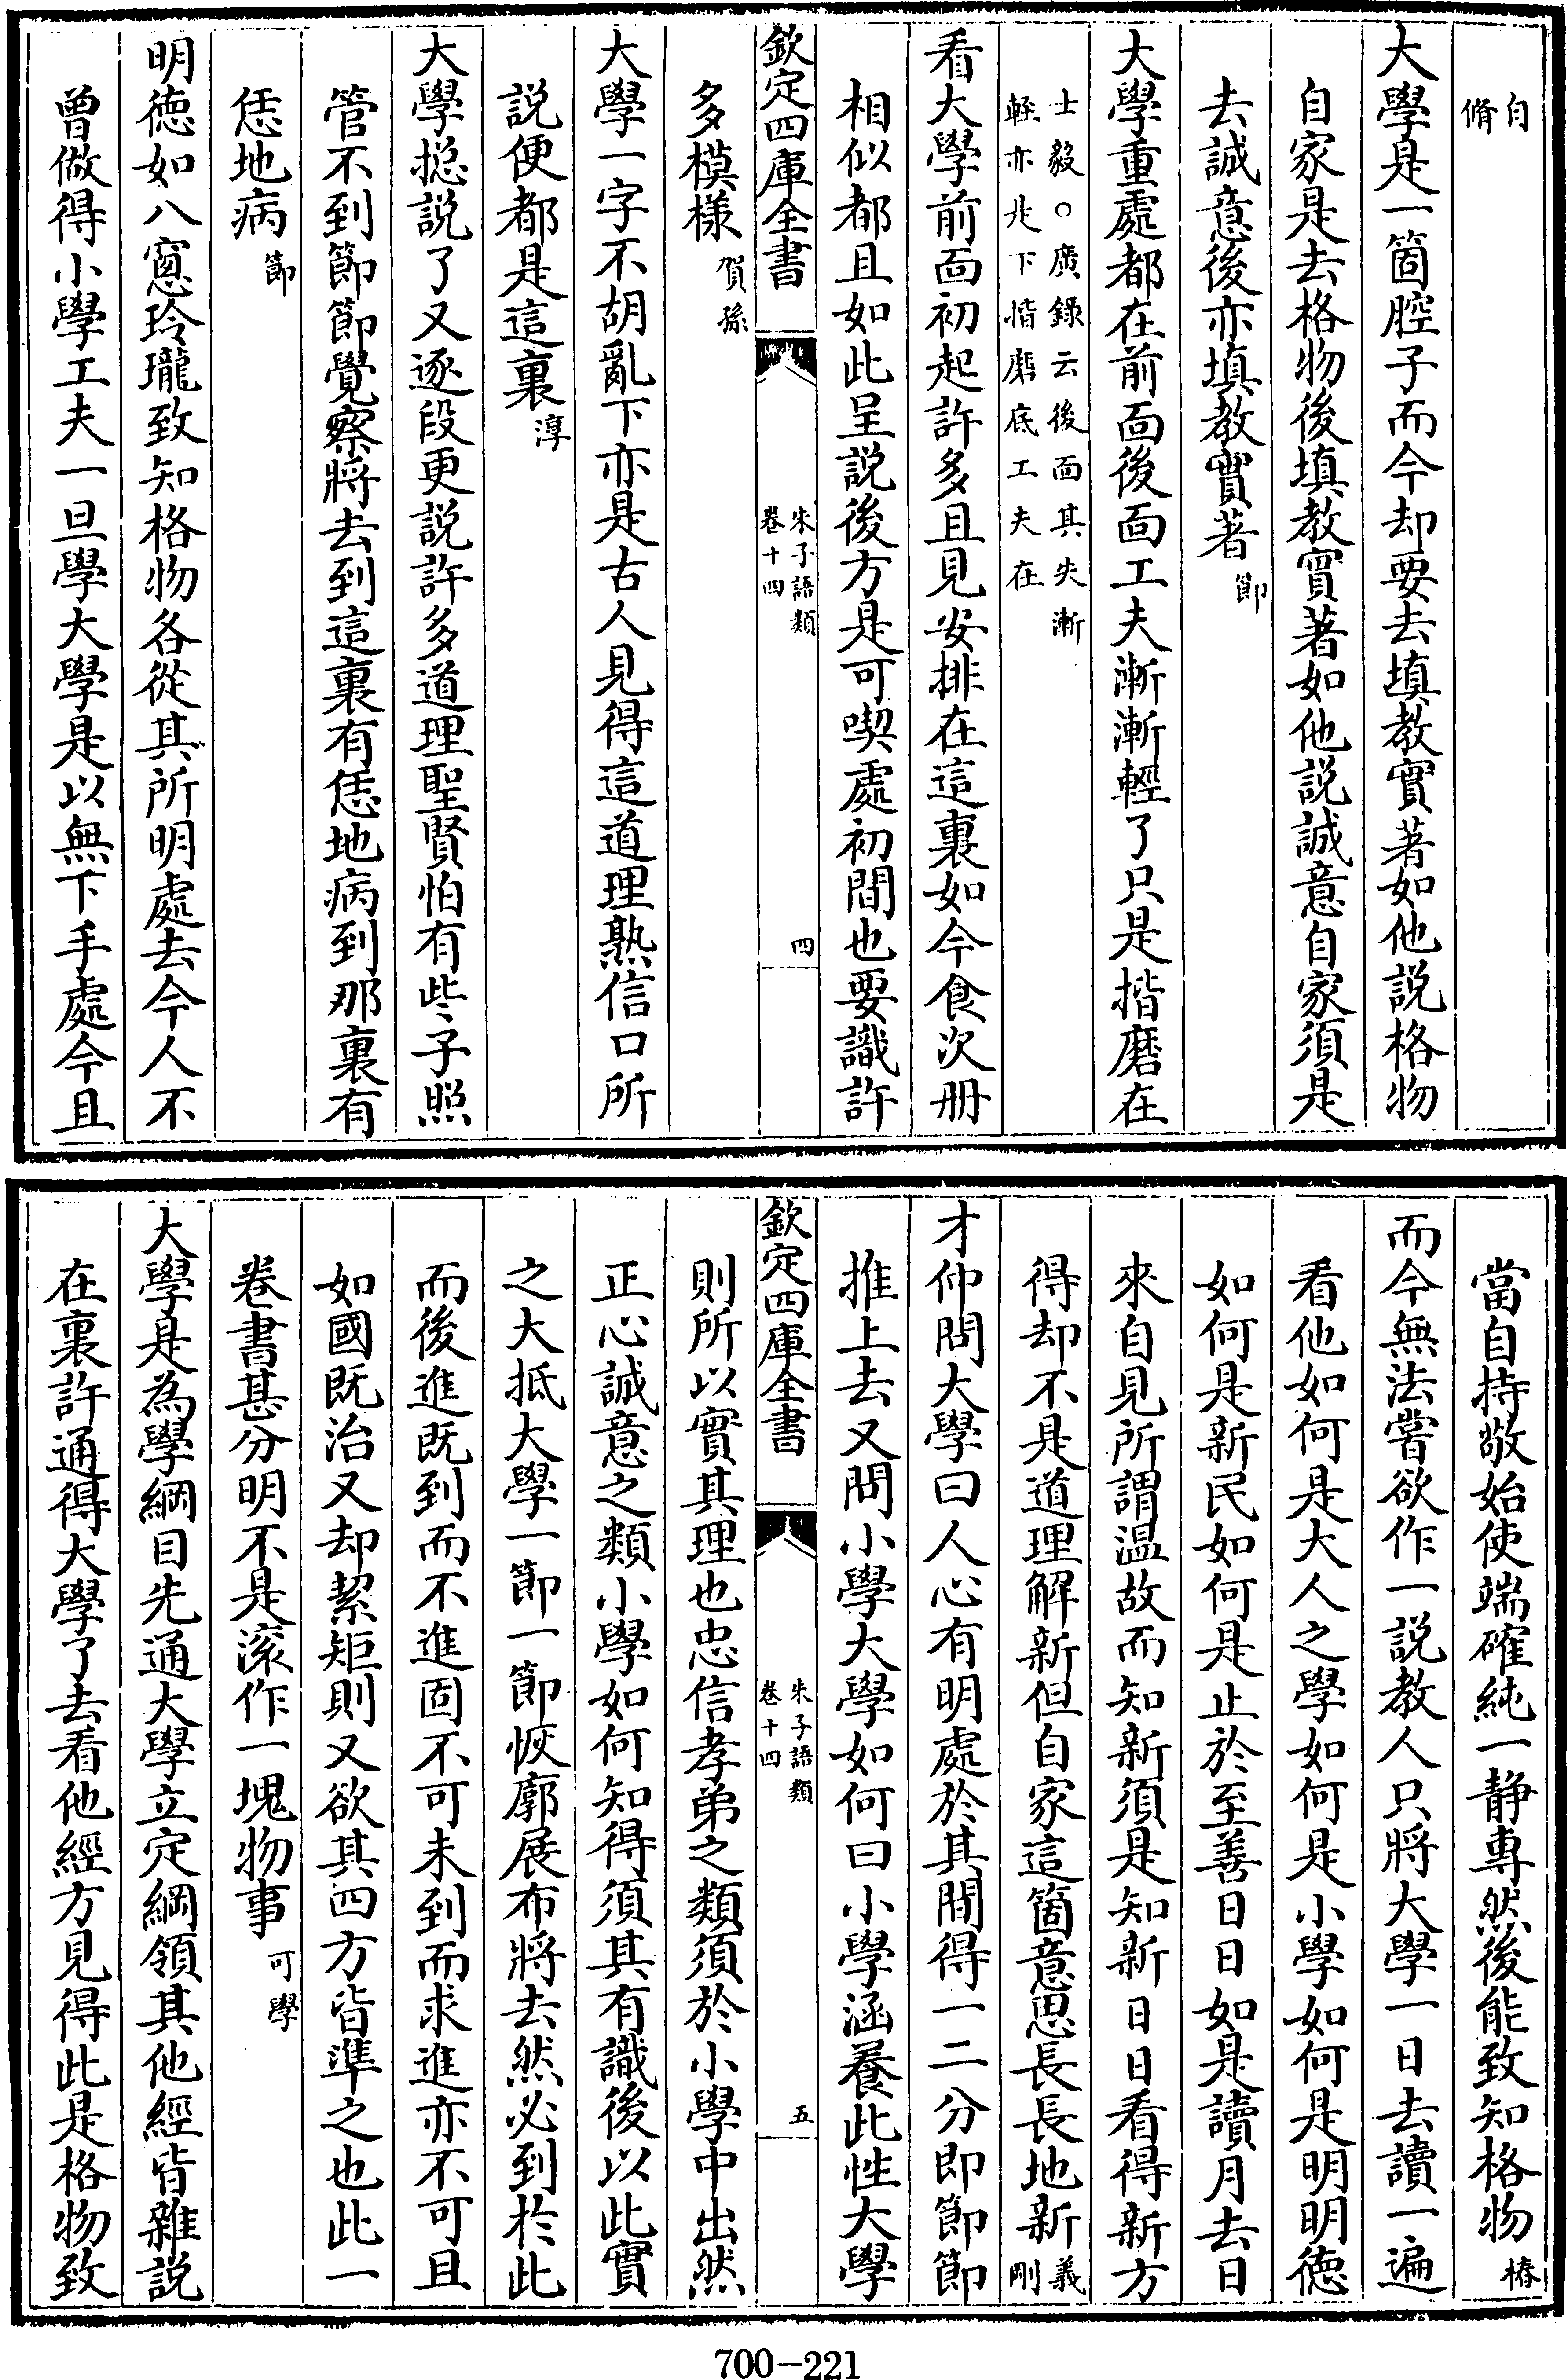 自
脩
大學是一箇腔子而今却要去填教實著如他説格物
自家是去格物後填教實著如他説誠意自家須是
去誠意後亦填教實著節
大學重處都在前面後面工夫漸漸輕了只是揩磨在
士毅○廣録云後面其失漸
輕亦非下揩磨底工夫在
看大學前面初起許多且見安排在這裏如今食次册
相似都且如此呈説後方是可喫處初間也要識許
欽定四庫全書
朱子語類
卷十四
四
多模樣賀孫
大學一字不胡亂下亦是古人見得這道理熟信口所
説便都是這裏淳
大學揔説了又逐段更説許多道理聖賢怕有些子照
管不到節節覺察將去到這裏有恁地病到那裏有
恁地病節
明徳如八窻玲瓏致知格物各從其所明處去今人不
曽做得小學工夫一旦學大學是以無下手處今且
當自持敬始使端確純一静專然後能致知格物椿
而今無法嘗欲作一説教人只將大學一日去讀一遍
看他如何是大人之學如何是小學如何是明明徳
如何是新民如何是止於至善日日如是讀月去日
來自見所謂温故而知新須是知新日日看得新方
得却不是道理解新但自家這箇意思長長地新義
剛
才仲問大學曰人心有明處於其間得一二分即節節
推上去又問小學大學如何曰小學涵養此性大學
欽定四庫全書
朱子語類
卷十四
五
則所以實其理也忠信孝弟之類須於小學中出然
正心誠意之類小學如何知得須其有識後以此實
之大抵大學一節一節恢廓展布將去然必到於此
而後進既到而不進固不可未到而求進亦不可且
如國既治又却絜矩則又欲其四方皆準之也此一
卷書甚分明不是滚作一塊物事可學
大學是為學綱目先通大學立定綱領其他經皆雜説
在裏許通得大學了去看他經方見得此是格物致
700-221